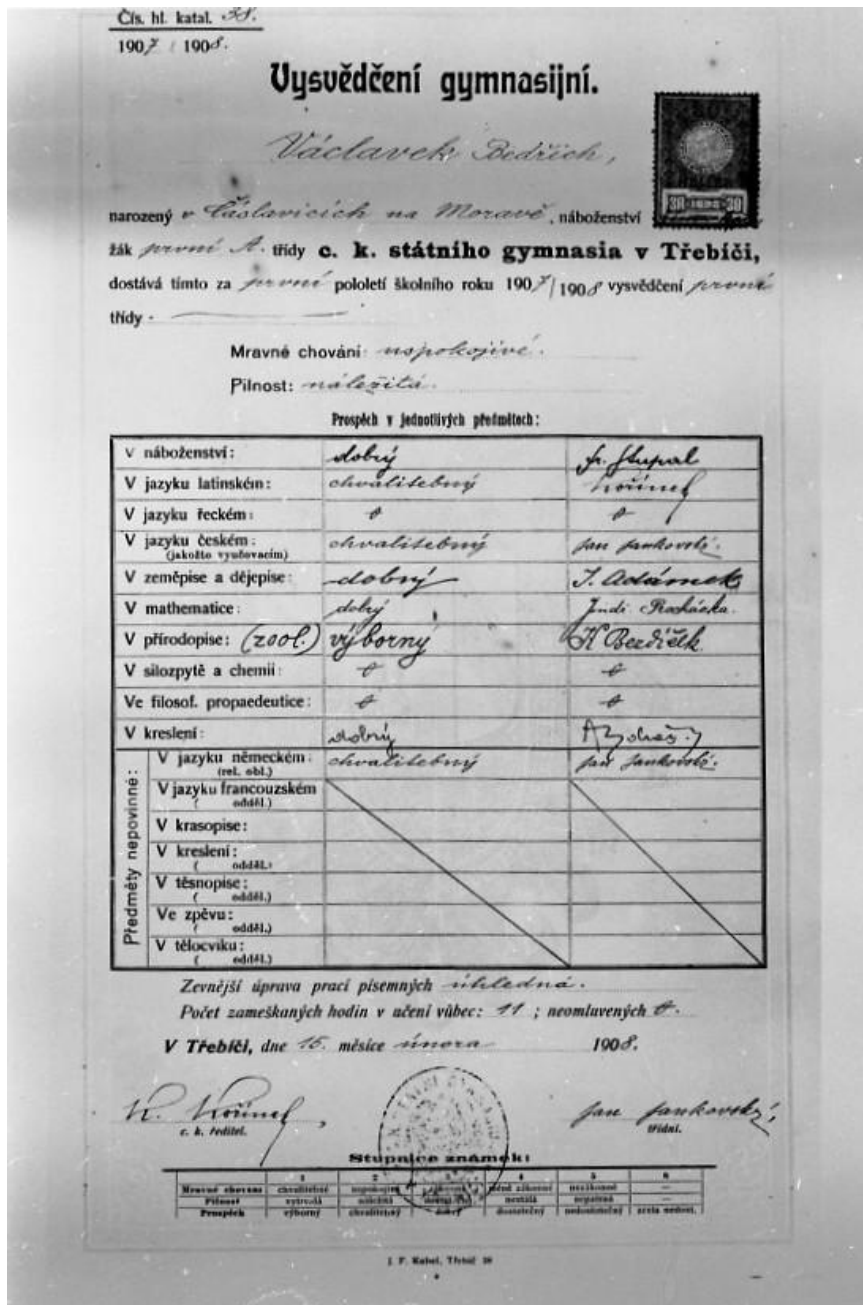 Čís. hl. katal. 38.
1907 / 1908.
Vysvědčení gymnasijní.
Václavek Bedřich,
narozený v Čáslavicích na Moravě, náboženství
žák první A. třídy c. k. státního gymnasia v Třebíči,
dostává tímto za první pololetí školního roku 1907/1908 vysvědčení první
třídy.
Mravné chování: uspokojivé.
Pilnost: náležitá.
Prospěch v jednotlivých předmětech:
V náboženství: dobrý
V jazyku latinském: chvalitebný Kořínek
V jazyku řeckém:
V jazyku českém: chvalitebný Jan Jankovský.
(jakožto vyučovacím)
V zeměpise a dějepise: dobrý J. Adámek
V mathematice: dobrý
V přírodopise: (zool.) výborný K Bezdíček
V silozpytě a chemii:
Ve filosof. propaedeutice:
V kreslení: dobrý
Předměty nepovinné:
V jazyku německém: chvalitebný Jan Jankovský.
(rel. obl.)
V jazyku francouzském
( odděl.)
V krasopise:
V kreslení:
( odděl.)
V těsnopise:
( odděl.)
Ve zpěvu:
( odděl.)
V tělocviku:
( odděl.)
Zevnější úprava prací písemných úhledná.
Počet zameškaných hodin v učení vůbec: 11 ; neomluvených 0.
V Třebíči, dne 15. měsíce února 1908.
K. Kořínek, Jan Jankovský,
c. k. ředitel. třídní.
Stupnice známek:
1 2 3 4 5 6
Mravné chování chvalitebné uspokojivé zákonné méně zákonné nezákonné —
Pilnost vytrvalá náležitá dostatečná nestálá nepatrná —
Prospěch výborný chvalitebný dobrý dostatečný nedostatečný zcela nedost.
J. F. Kubeš, Třebíč